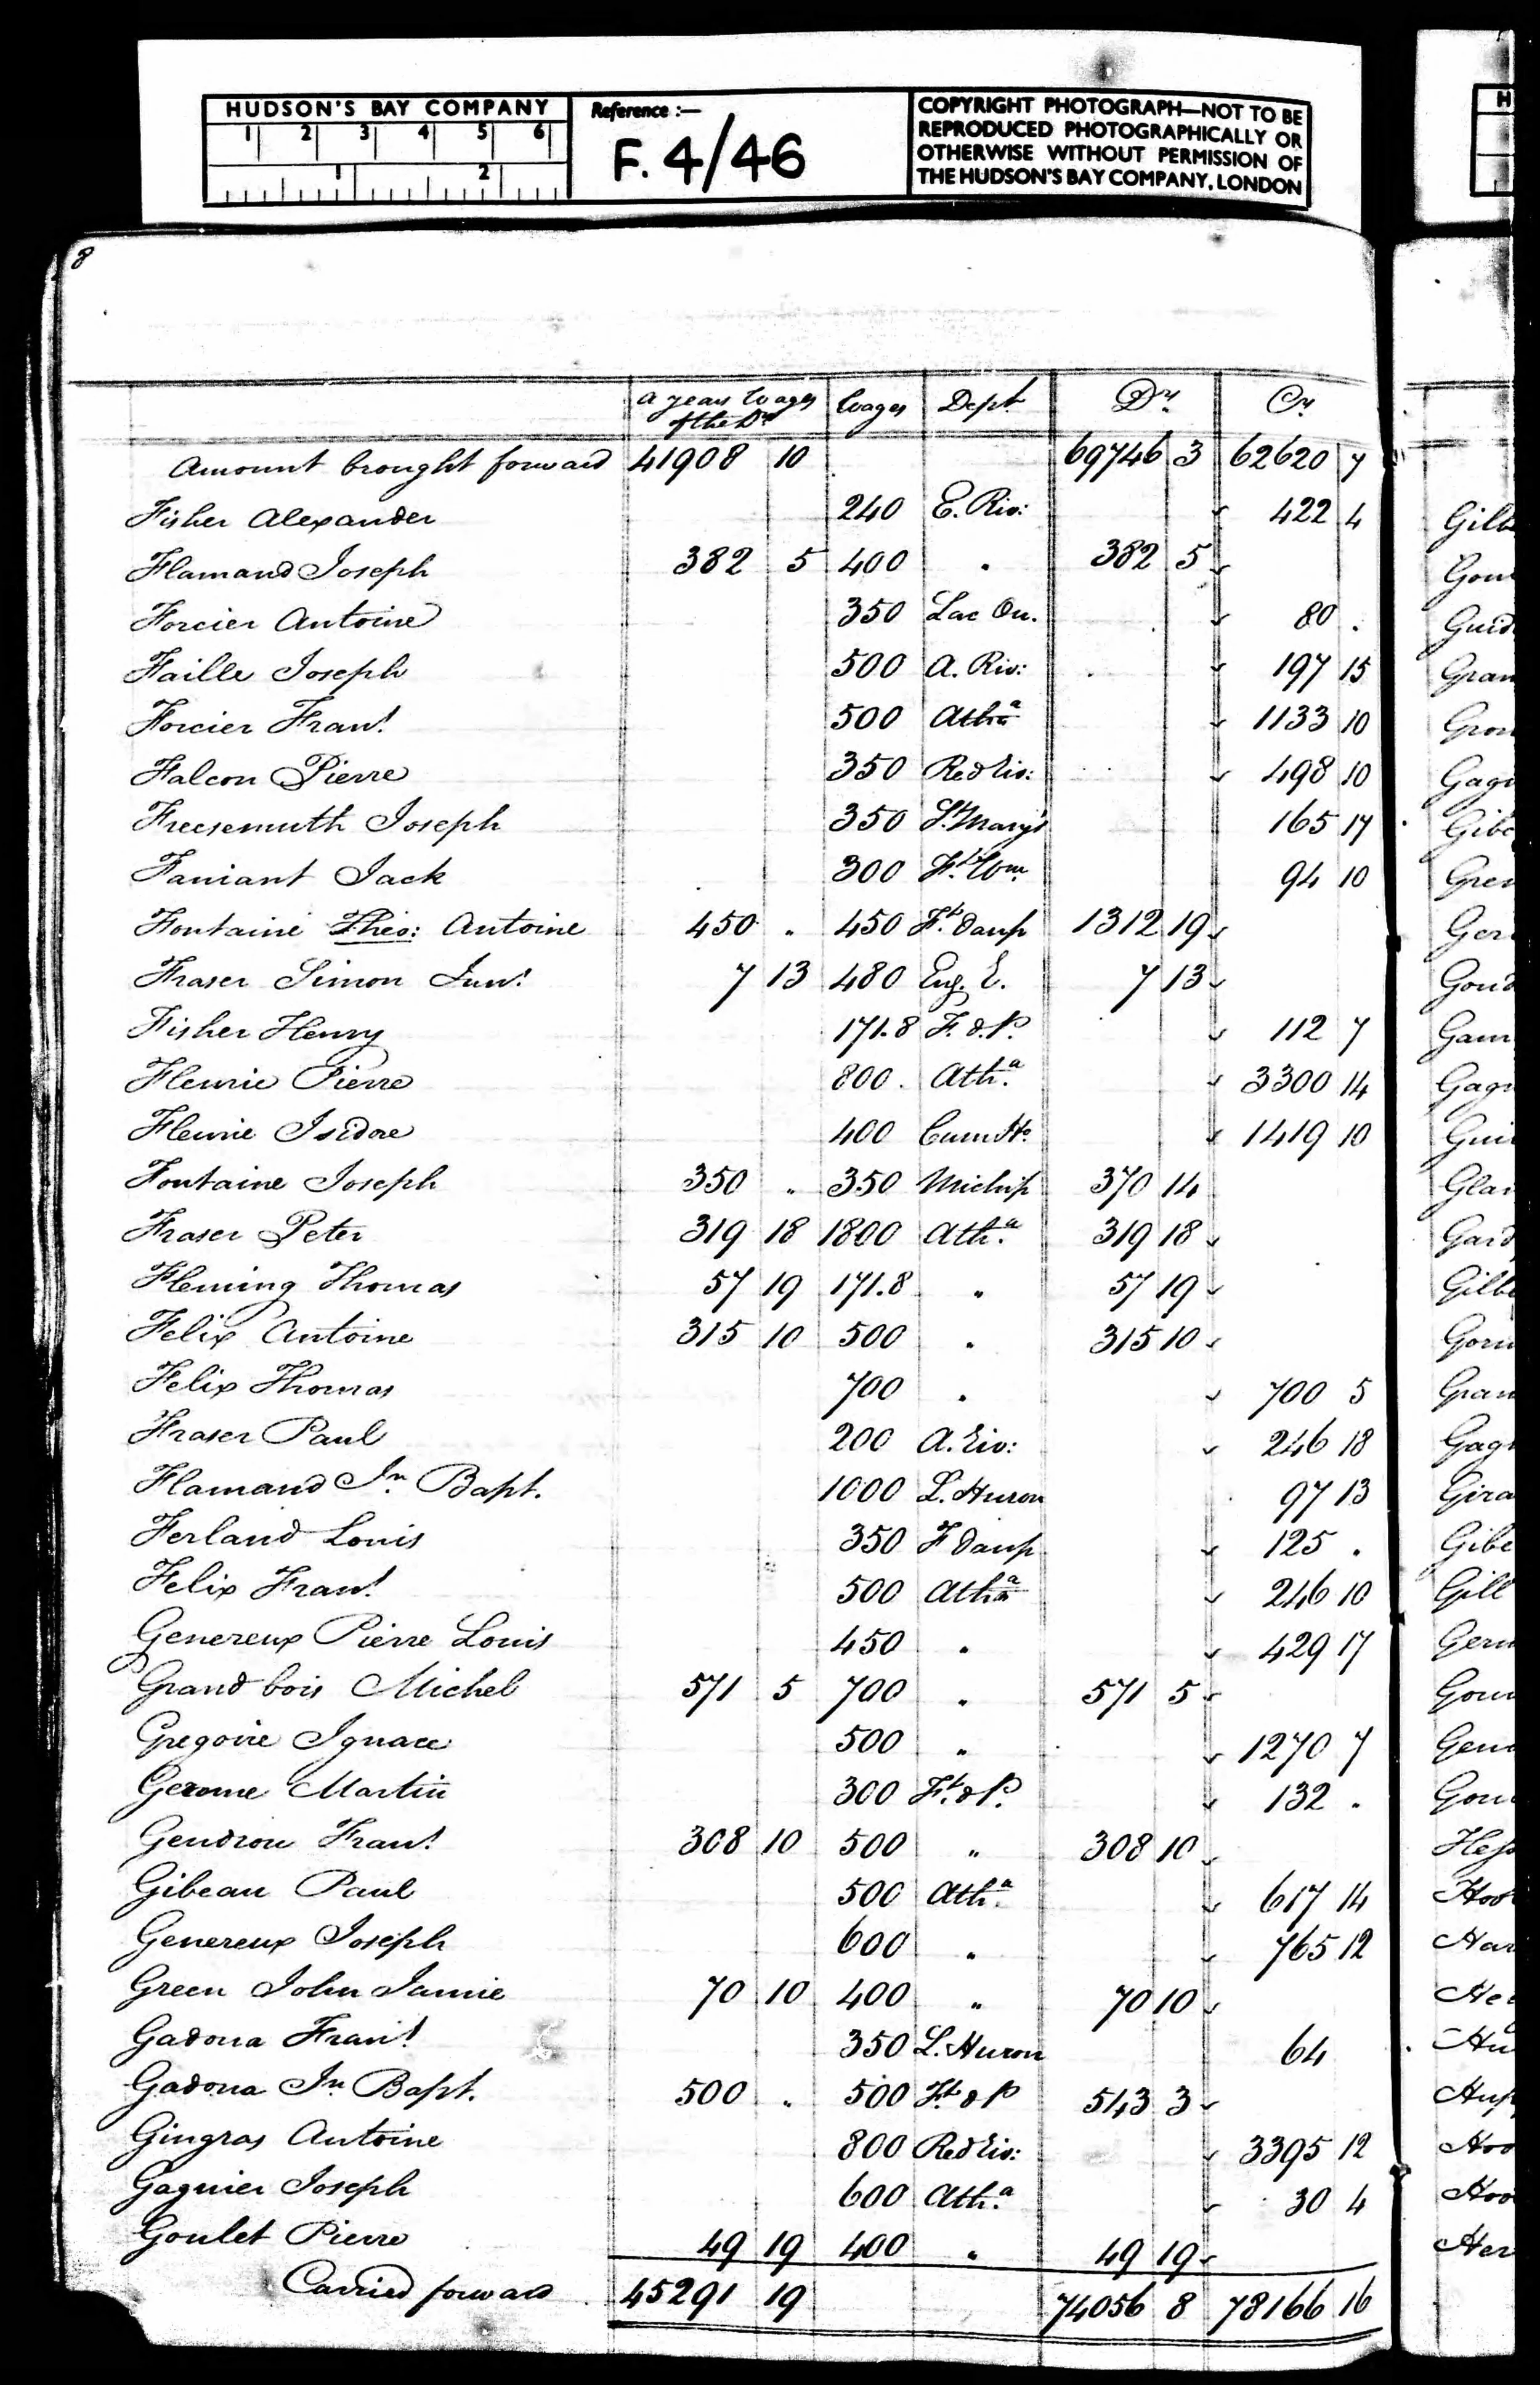 HUDSON'S BAY COMPANY
1 2 3 4 5 6
1 2
Reference :—
F. 4/46
COPYRIGHT PHOTOGRAPH—NOT TO BE
REPRODUCED PHOTOGRAPHICALLY OR
OTHERWISE WITHOUT PERMISSION OF
THE HUDSON'S BAY COMPANY, LONDON
8
a years Wages of the Dr Wages Dept Dr. Cr.
Amount brought forward 41908 10 69746 3 62620 7
Fisher Alexander 240 E. Riv: 422 4
Flamand Joseph 382 5 400 " 382 5
Forcier Antoine 350 Lac Ou. 80 .
Faille Joseph 500 A. Riv: 197 15
Forcier Frans. 500 Atha 1133 10
Falcon Pierre 350 Red Riv: 498 10
Freesemuth Joseph 350 St. Mary's 165 17
Faniant Jack 300 Ft. Wm. 94 10
Fontaine Theo: Antoine 450 " 450 Ft. Daup 1312 19
Fraser Simon Junr. 7 13 480 Eng. E. 7 13
Fisher Henry 171.8 F. d. P. 112 7
Fleurie Pierre 800. Atha. 3300 14
Fleurie Isidore 400 Cum Ho. 1419 10
Fontaine Joseph 350 " 350 Michip 370 14
Fraser Peter 319 18 1800 Atha. 319 18
Fleming Thomas 57 19 171.8 " 57 19
Felix Antoine 315 10 500 " 315 10
Felix Thomas 700 " 700 5
Fraser Paul 200 A. Riv: 246 18
Flamand Jn. Bapt. 1000 L. Huron 97 13
Ferland Louis 350 F Daup 125 .
Felix Frans. 500 Atha 246 10
Genereux Pierre Louis 450 " 429 17
Grand bois Michel 571 5 700 " 571 5
Gregoire Ignace 500 " 1270 7
Gerome Martin 300 Ft. d P. 132 .
Gendron Frans. 308 10 500 " 308 10
Gibeau Paul 500 Atha. 617 14
Genereux Joseph 600 " 765 12
Green John Jamie 70 10 400 " 70 10
Gadoua Frans. 350 L. Huron 64
Gadoua Jn Bapt. 500 " 500 Ft. d P 543 3
Gingras Antoine 800 Red Riv: 3395 12
Gagnier Joseph 600 Atha. 30 4
Goulet Pierre 49 19 400 " 49 19
Carried forward 45291 19 74056 8 78166 16